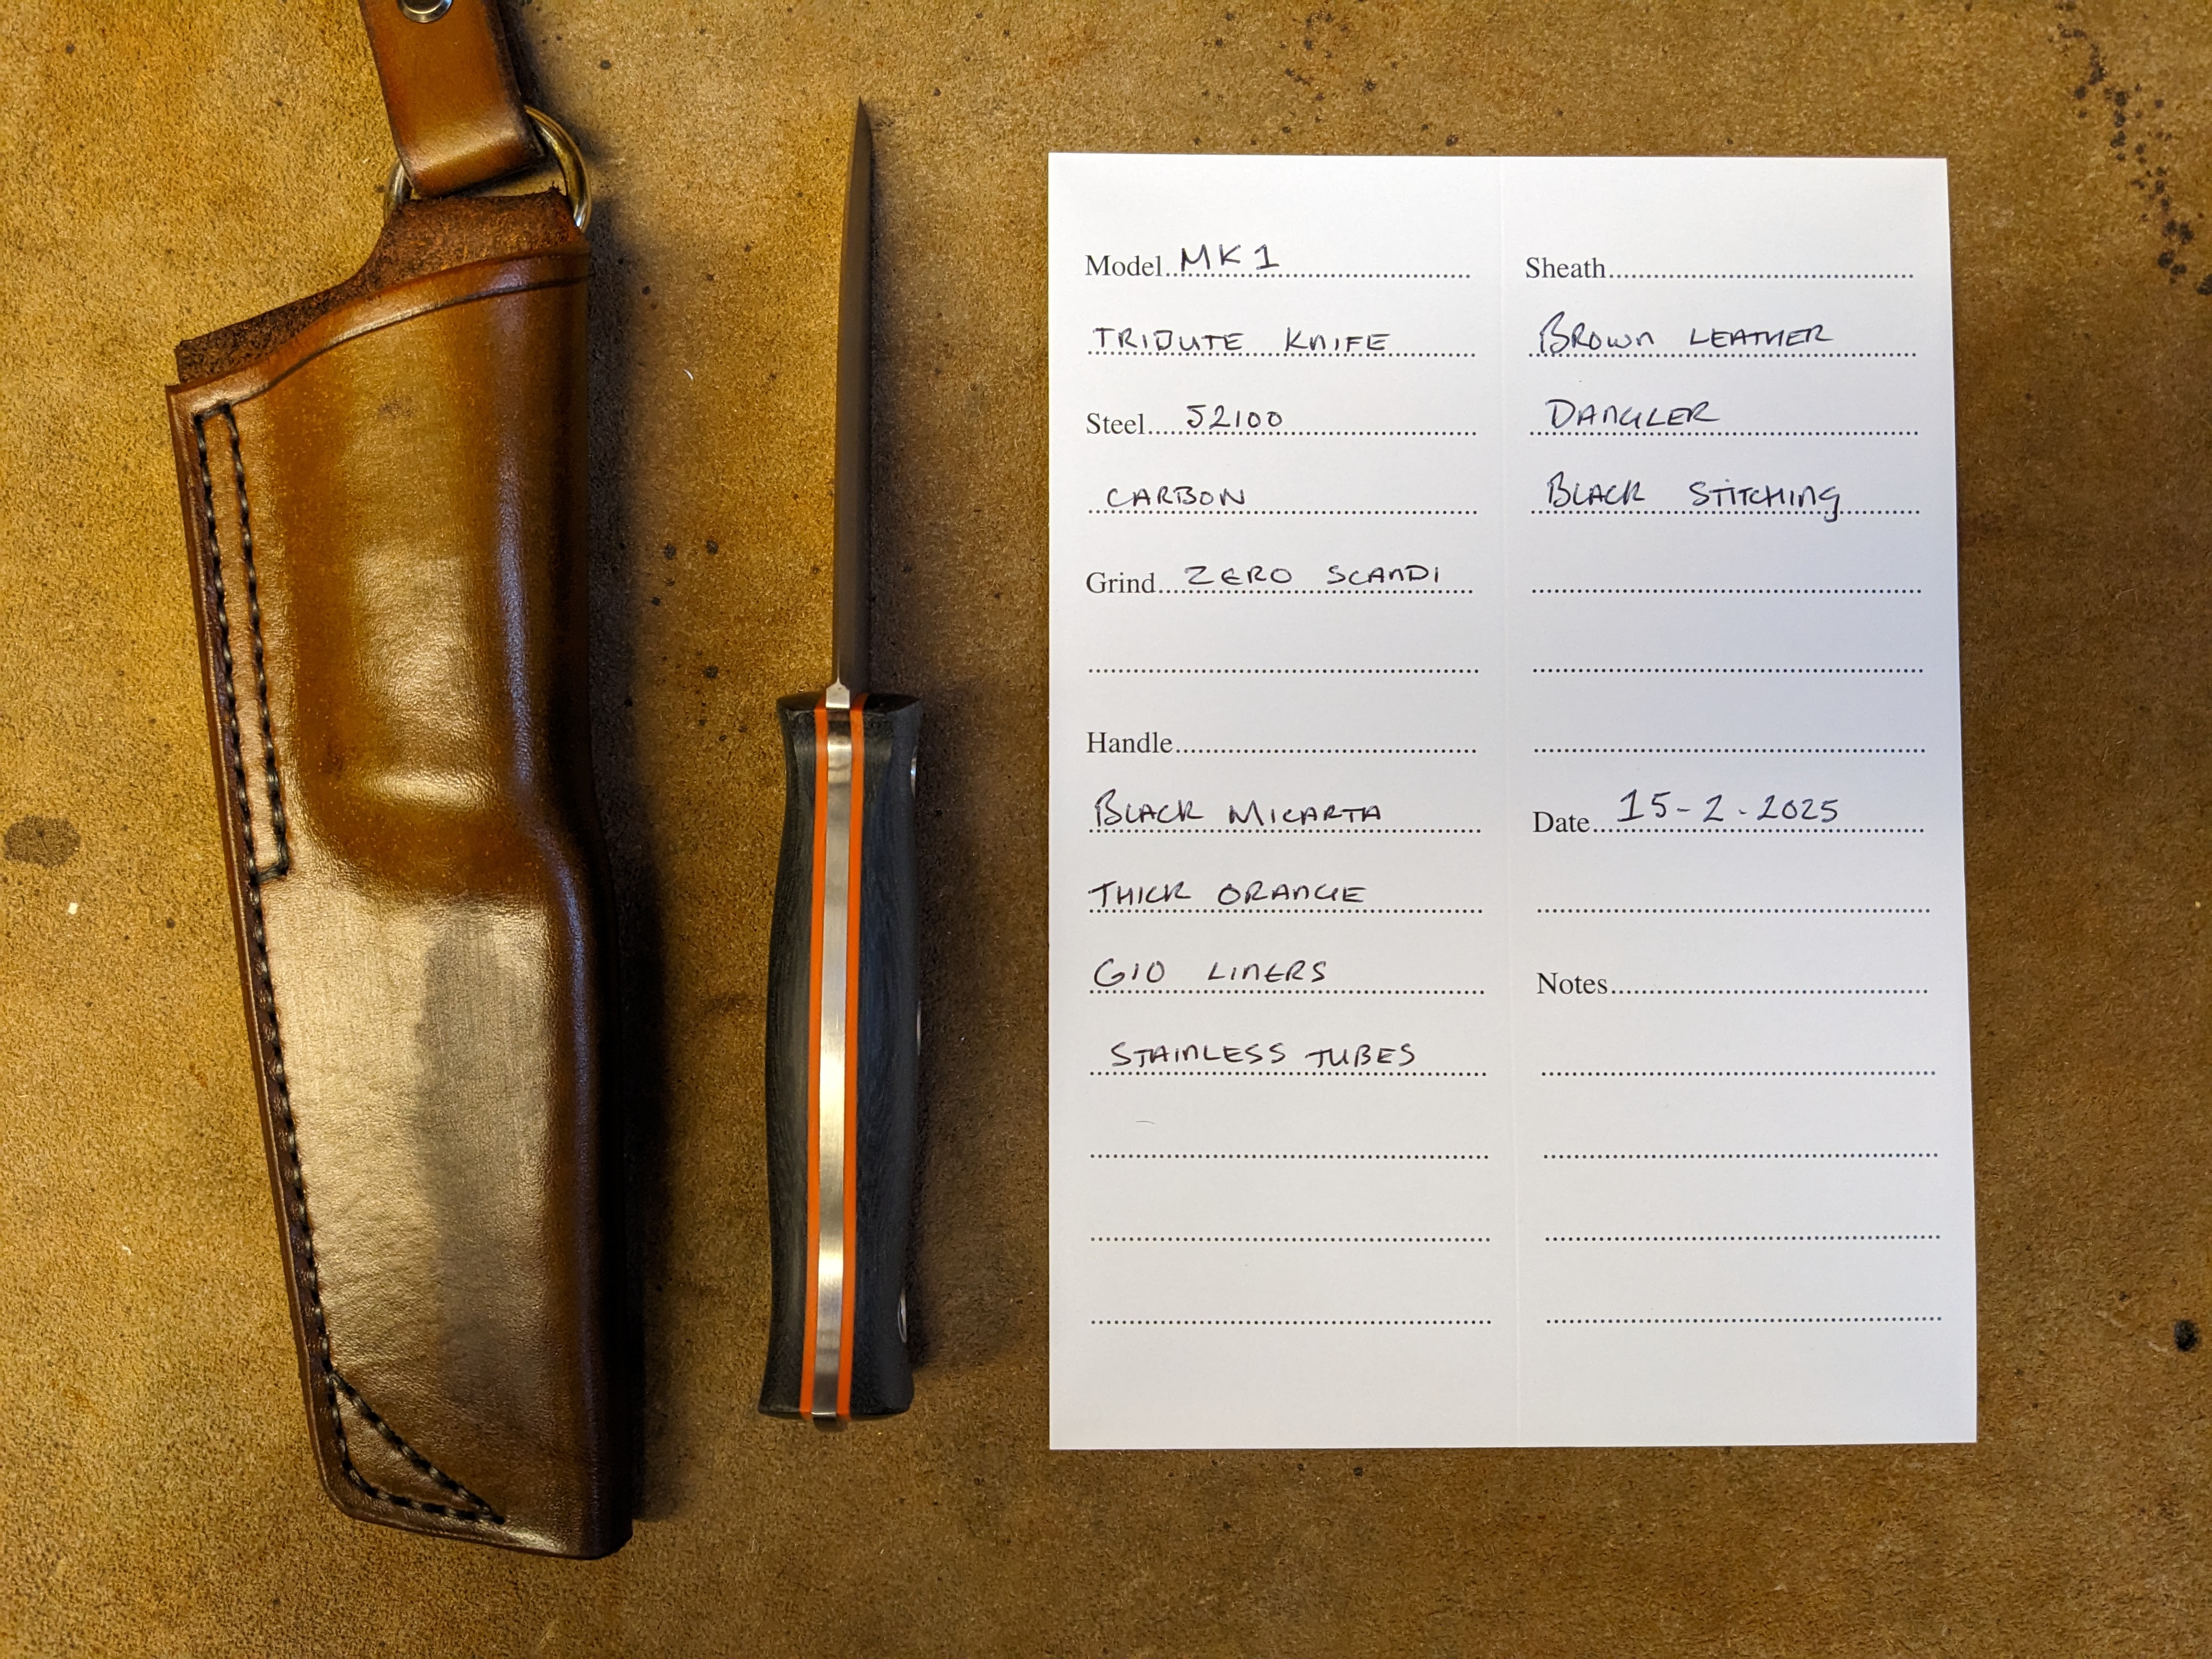 Model MK1
TRIBUTE KNIFE
Steel 52100
CARBON
Grind ZERO SCANDI
Handle
BLACK MICARTA
THICK ORANGE
G10 LINERS
STAINLESS TUBES
Sheath
BROWN LEATHER
DANGLER
BLACK STITCHING
Date 15-2-2025
Notes